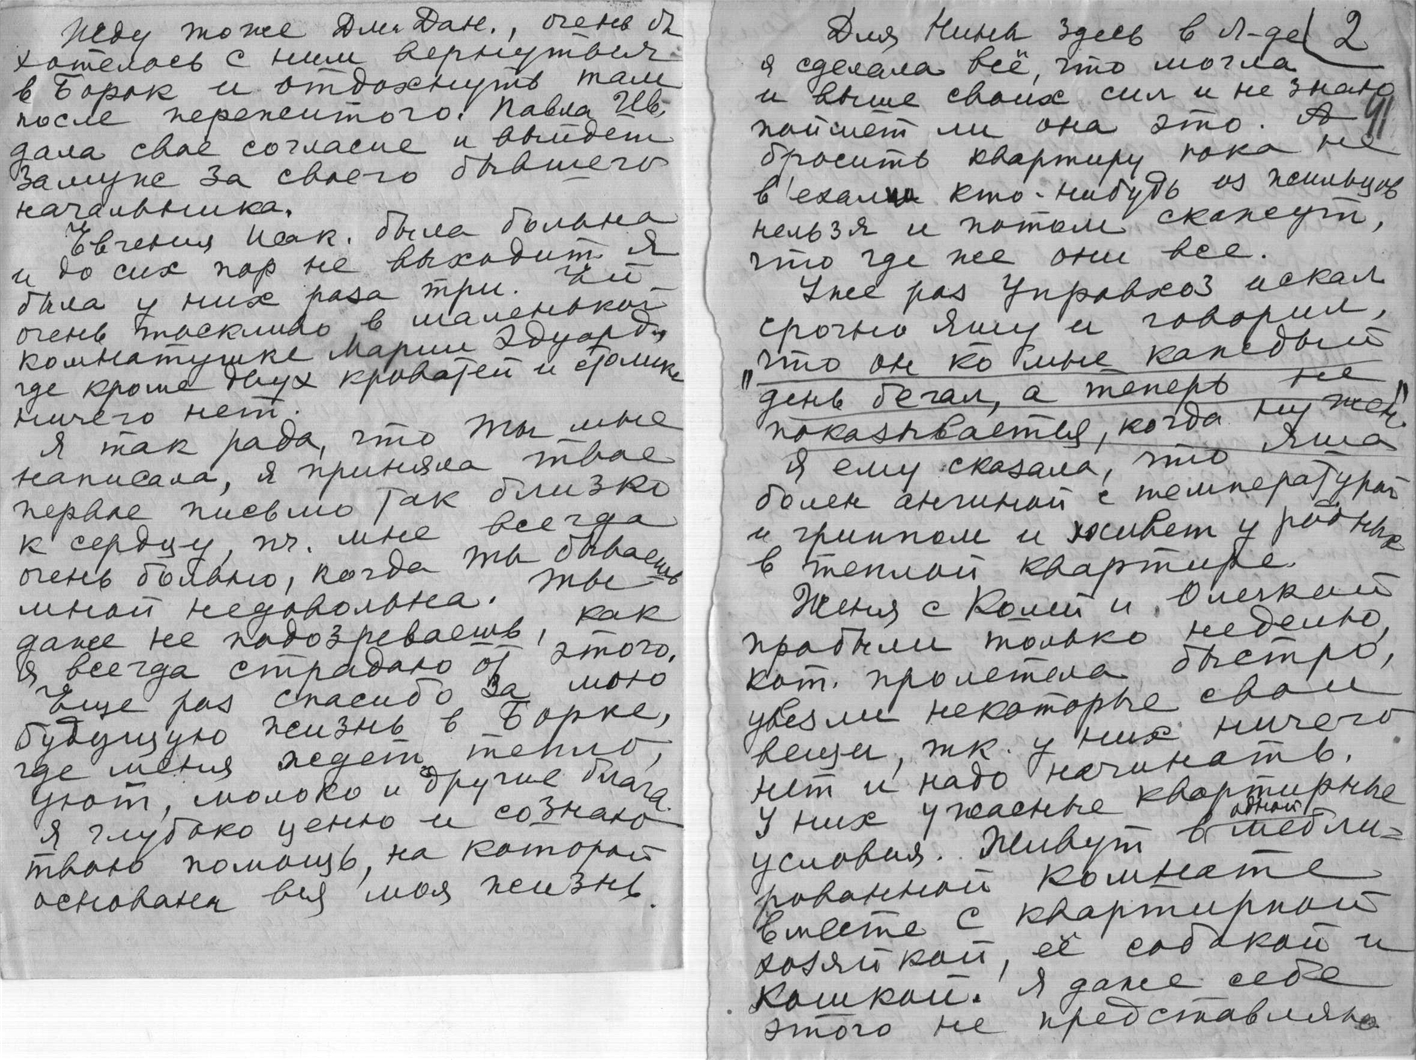 Жду тоже Дм. Дан., очень бы
хотелось с ним вернуться
в Борок и отдохнуть там
после пережитого. Павла Ив.
дала свое согласие и выйдет
замуж за своего бывшего
начальника.
Евгения Исак. была больна
и до сих пор не выходит. Я
была у них раза три. Ей
очень тоскливо в маленькой
комнатушке Марии Эдуард.
где кроме двух кроватей и столика
ничего нет.
Я так рада, что ты мне
написала, я приняла твое
первое письмо так близко
к сердцу, пч. мне всегда
очень больно, когда ты бываешь
мной недовольна. Ты
даже не подозреваешь, как
я всегда страдаю от этого.
Еще раз спасибо за мою
будущую жизнь в Борке,
где меня ждет тепло,
уют, молоко и другие блага.
Я глубоко ценю и сознаю
твою помощь, на которой
основана вся моя жизнь.
Для Нины здесь в Л-де 2
я сделала всё, что могла
и выше своих сил и не знаю
поймет ли она это. А 91
бросить квартиру пока не
въехали кто-нибудь из жильцов
нельзя и потом скажут,
что где же они все.
Уже раз Управхоз искал
срочно Яшу и говорил,
"что он ко мне каждый
день бегал, а теперь не
показывается, когда нужен."
Я ему сказала, что Яша
болен ангиной с температурой
и гриппом и живет у родных
в теплой квартире.
Женя с Колей и Олечкой
пробыли только неделю,
кот. пролетела быстро,
увезли некоторые свои
вещи, тк. у них ничего
нет и надо начинать.
У них ужасные квартирные
условия. Живут в одной мебли=
рованной комнате
вместе с квартирной
хозяйкой, её собакой и
кошкой. Я даже себе
этого не представляю